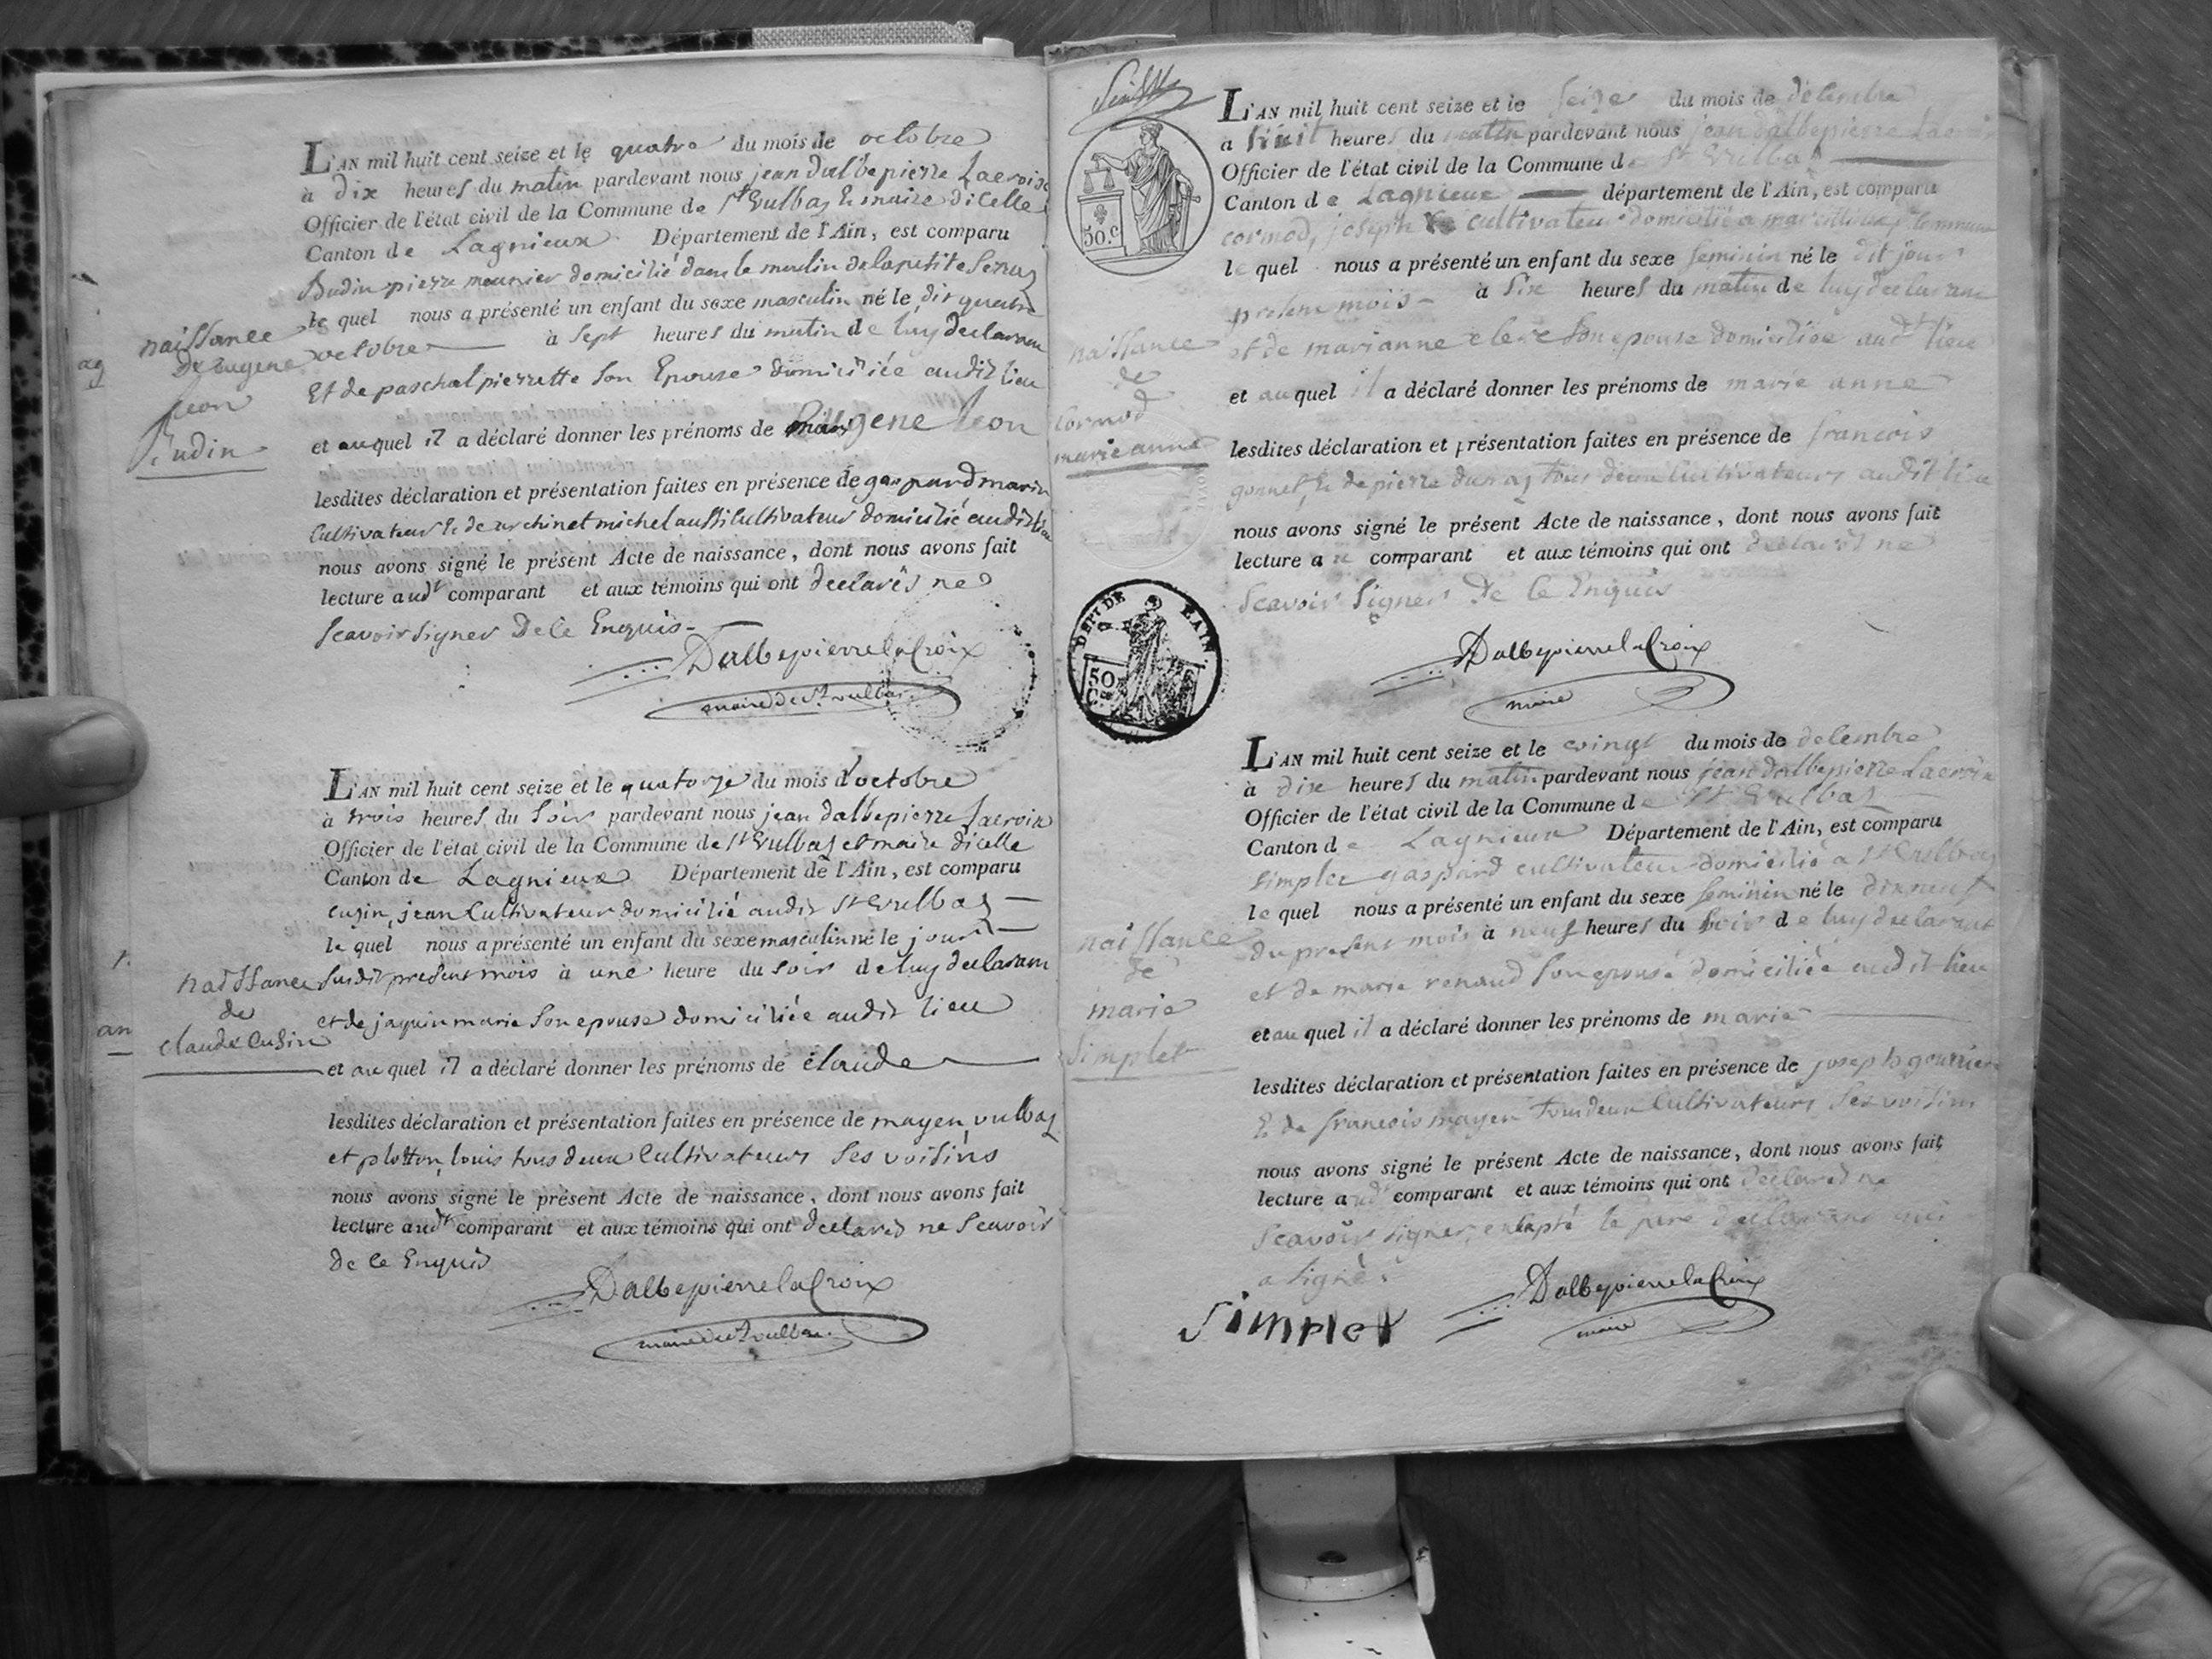 L'AN mil huit cent seize et le quatre du mois de octobre
à dix heures du matin pardevant nous jean dalbepierre Lacroix
Officier de l'état civil de la Commune de St Vulbas & maire dicelle
Canton de Lagnieux Département de l'Ain, est comparu
Budin pierre meunier domicilié dans le moulin de la petite
le quel nous a présenté un enfant du sexe masculin né le dit quatre
octobre à sept heures du matin de luy declarant
Et de paschal pierrette son Epouse domiciliée audit lieu
et auquel il a déclaré donner les prénoms de gene leon
lesdites déclaration et présentation faites en présence de gaspard marin
Cultivateur & de michel aussi Cultivateur domicilié audit lieu
nous avons signé le présent Acte de naissance, dont nous avons fait
lecture audt comparant et aux témoins qui ont declarés ne
scavoir signer De ce Enquis
DalbepierrelaCroix
maire de St vulbas
naissance
De Eugene
Leon
Budin
L'AN mil huit cent seize et le quatorze du mois d'octobre
à trois heures du soir pardevant nous jean dalbepierre Lacroix
Officier de l'état civil de la Commune de St Vulbas et maire dicelle
Canton de Lagnieux Département de l'Ain, est comparu
cusin, jean Cultivateur domicilié audit St Vulbas
le quel nous a présenté un enfant du sexe masculin né le jour
susdit present mois à une heure du soir de luy declarant
et de jaquin marie son epouse domiciliée audit lieu
et au quel il a déclaré donner les prénoms de claude
lesdites déclaration et présentation faites en présence de mayen, vulbas
et plotton, louis tous deux Cultivateurs ses voisins
nous avons signé le présent Acte de naissance, dont nous avons fait
lecture audt comparant et aux témoins qui ont declarés ne scavoir
De ce Enquis
DalbepierrelaCroix
maire de St vulbas
naissance
de
claude Cusin
50.c
L'AN mil huit cent seize et le seize du mois de decembre
a huit heures du matin pardevant nous jean dalbepierre
Officier de l'état civil de la Commune de St Vulbas
Canton de Lagnieux département de l'Ain, est comparu
cormod, joseph cultivateur domicilié a
le quel nous a présenté un enfant du sexe feminin né le dit jour
present mois à six heures du matin de luy declarant
et de marianne son epouse domiciliée audt lieu
et auquel il a déclaré donner les prénoms de marie anne
lesdites déclaration et présentation faites en présence de francois
gonnet, & de pierre tous deux Cultivateurs audit lieu
nous avons signé le présent Acte de naissance, dont nous avons fait
lecture au comparant et aux témoins qui ont declarés ne
scavoir signer De ce Enquis
DalbepierrelaCroix
maire
naissance
de
Cormod
marie anne
DEPT DE L'AIN
50 C.
L'AN mil huit cent seize et le vingt du mois de decembre
à dix heures du matin pardevant nous jean dalbepierre Lacroix
Officier de l'état civil de la Commune de St Vulbas
Canton de Lagnieux Département de l'Ain, est comparu
simplet gaspard cultivateur domicilié a St Vulbas
le quel nous a présenté un enfant du sexe feminin né le dixneuf
du present mois à neuf heures du soir de luy declarant
et de marie renaud son epouse domiciliée audit lieu
et au quel il a déclaré donner les prénoms de marie
lesdites déclaration et présentation faites en présence de joseph
& de francois mayen tous deux Cultivateurs ses voisins
nous avons signé le présent Acte de naissance, dont nous avons fait
lecture audt comparant et aux témoins qui ont declarés ne
scavoir signer, le pere declarant qui
a signé
Simplet
DalbepierrelaCroix
maire
naissance
de
marie
Simplet